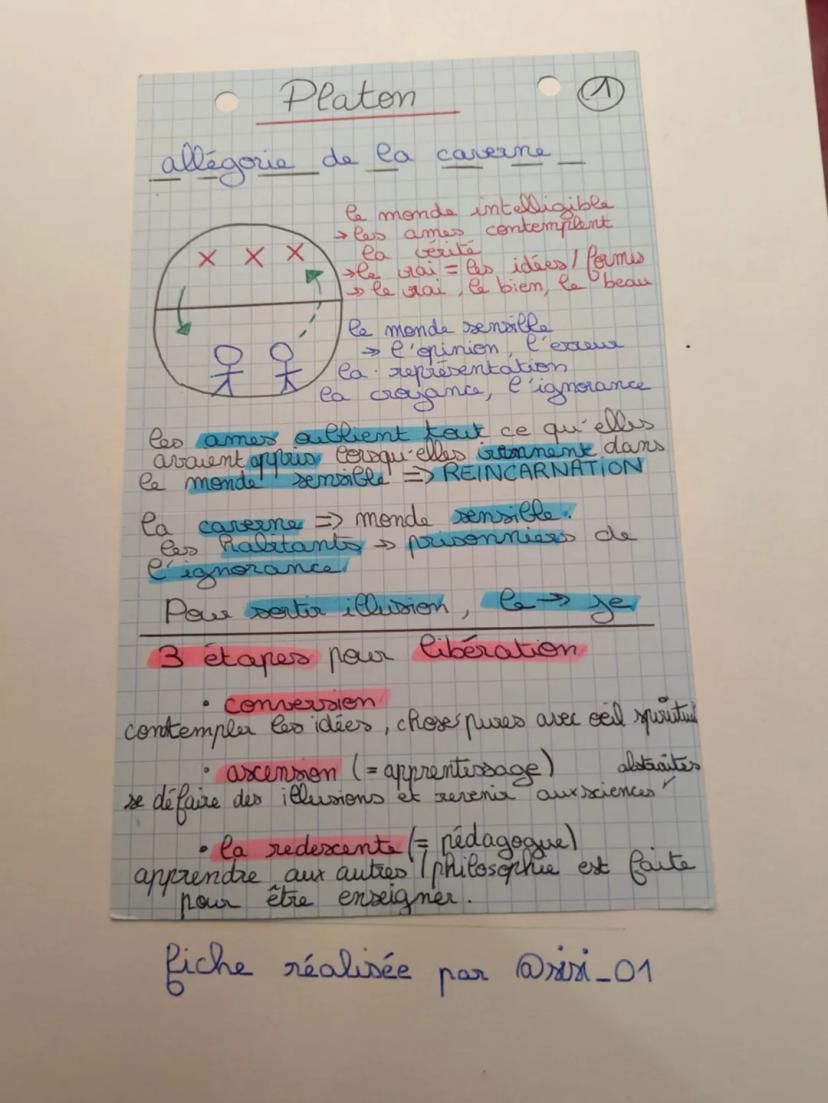 Platon
1
allégorie de la caverne
le monde intelligible
→ les ames contemplent
la vérité
→ le vrai = les idées / formes
→ le vrai, le bien, le beau
X X X
le monde sensible
→ l'opinion, l'erreur
la représentation
la croyance, l'ignorance
les ames oublient tout ce qu'elles
avaient appris lorsqu'elles viennent dans
le monde sensible => REINCARNATION
la caverne => monde sensible.
les habitants → prisonniers de
l'ignorance
Pour sortir illusion, le → je
3 étapes pour libération
• conversion
contempler les idées, choses pures avec oeil spirituel
• ascension (= apprentissage)
se défaire des illusions et revenir aux sciences abstraites
• la redescente (= pédagogue)
apprendre aux autres / philosophie est faite
pour être enseigner.
fiche réalisée par @sisi_01